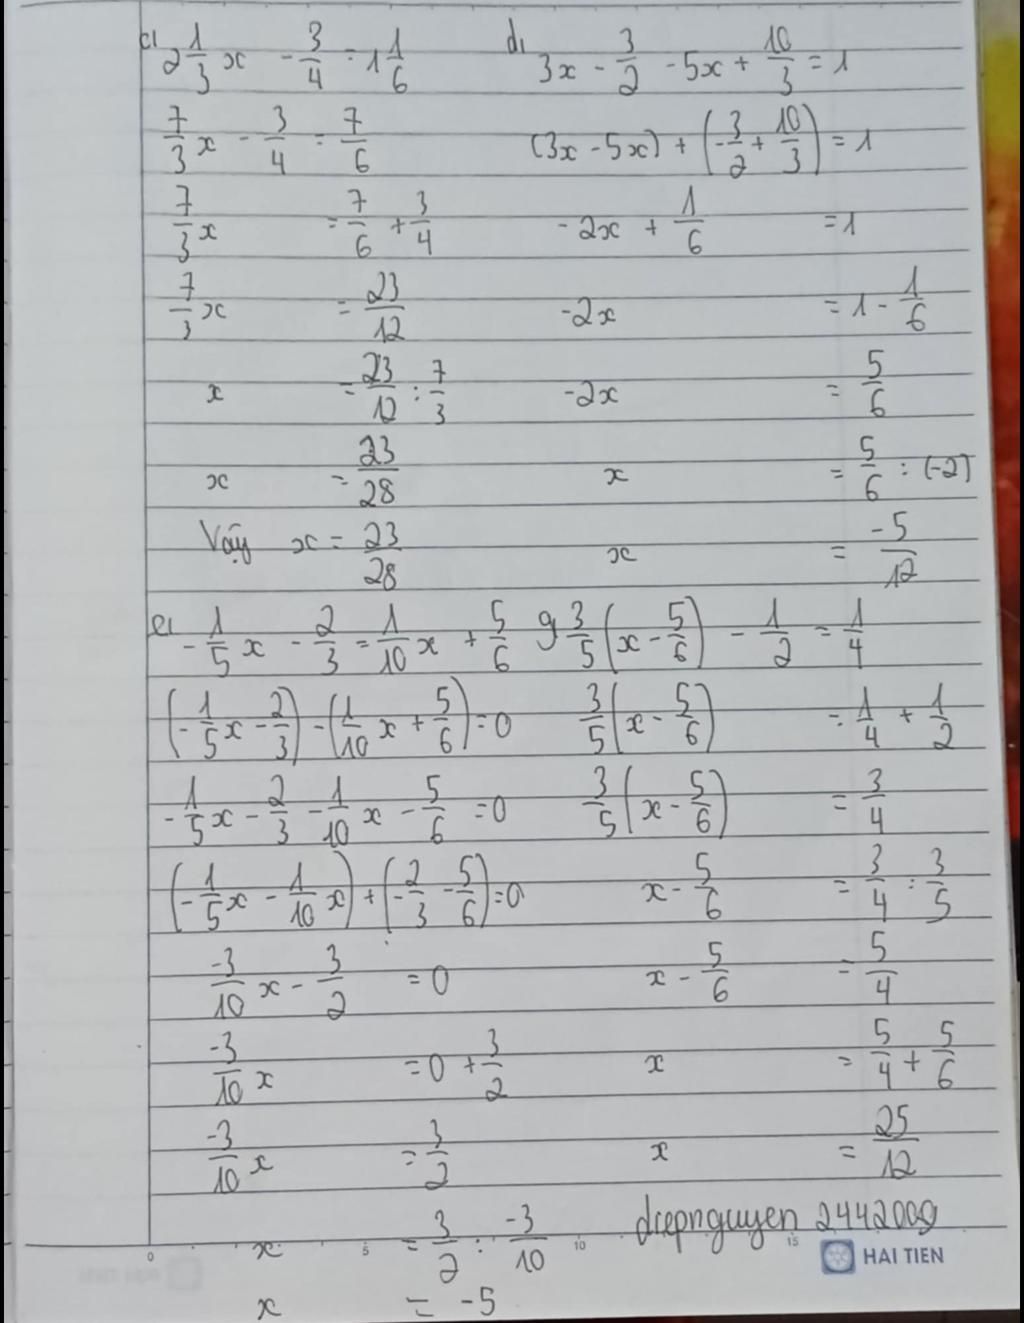 c) 2 1/3 x - 3/4 = 1 1/6
7/3 x - 3/4 = 7/6
7/3 x = 7/6 + 3/4
7/3 x = 23/12
x = 23/12 : 7/3
x = 23/28
Vậy x = 23/28
d) 3x - 3/2 - 5x + 10/3 = 1
(3x - 5x) + (-3/2 + 10/3) = 1
-2x + 1/6 = 1
-2x = 1 - 1/6
-2x = 5/6
x = 5/6 : (-2)
x = -5/12
e) -1/5 x - 2/3 = 1/10 x + 5/6
(-1/5 x - 2/3) - (1/10 x + 5/6) = 0
-1/5 x - 2/3 - 1/10 x - 5/6 = 0
(-1/5 x - 1/10 x) + (-2/3 - 5/6) = 0
-3/10 x - 3/2 = 0
-3/10 x = 0 + 3/2
-3/10 x = 3/2
x = 3/2 : -3/10
x = -5
g) 3/5 (x - 5/6) - 1/2 = 1/4
3/5 (x - 5/6) = 1/4 + 1/2
3/5 (x - 5/6) = 3/4
x - 5/6 = 3/4 : 3/5
x - 5/6 = 5/4
x = 5/4 + 5/6
x = 25/12
diepnguyen 2442009
0 5 10 15
HAI TIEN